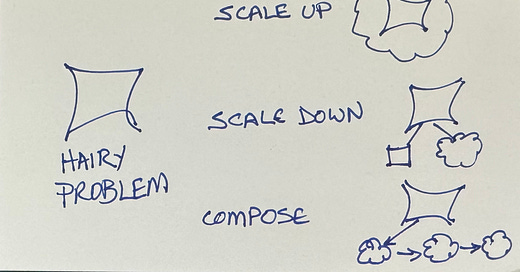 SCALE UP
SCALE DOWN
HAIRY
PROBLEM
COMPOSE